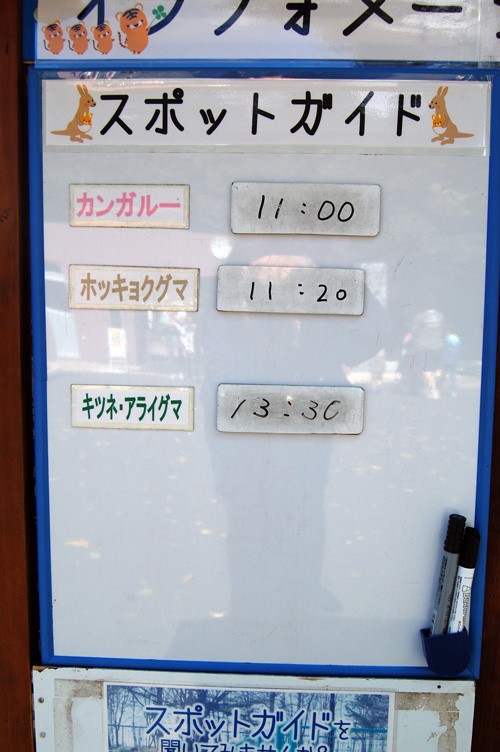 インフォメー
スポットガイド
カンガルー 11:00
ホッキョクグマ 11:20
キツネ・アライグマ 13:30
スポットガイドを
聞いてみませんか?